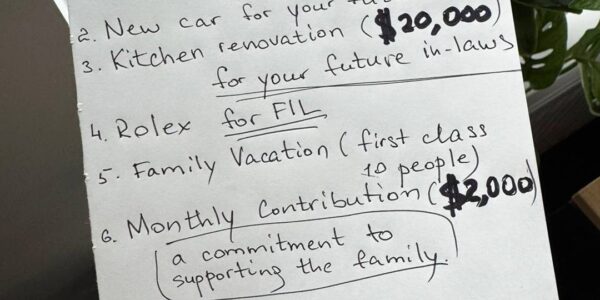 2. New car for your fu
3. Kitchen renovation ($20,000)
for your future in-laws
4. Rolex for FIL
5. Family Vacation (first class
10 people)
6. Monthly Contribution ($2,000)
a commitment to
supporting the family.